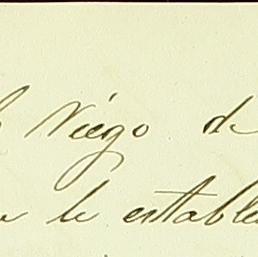 Viego de
le estable